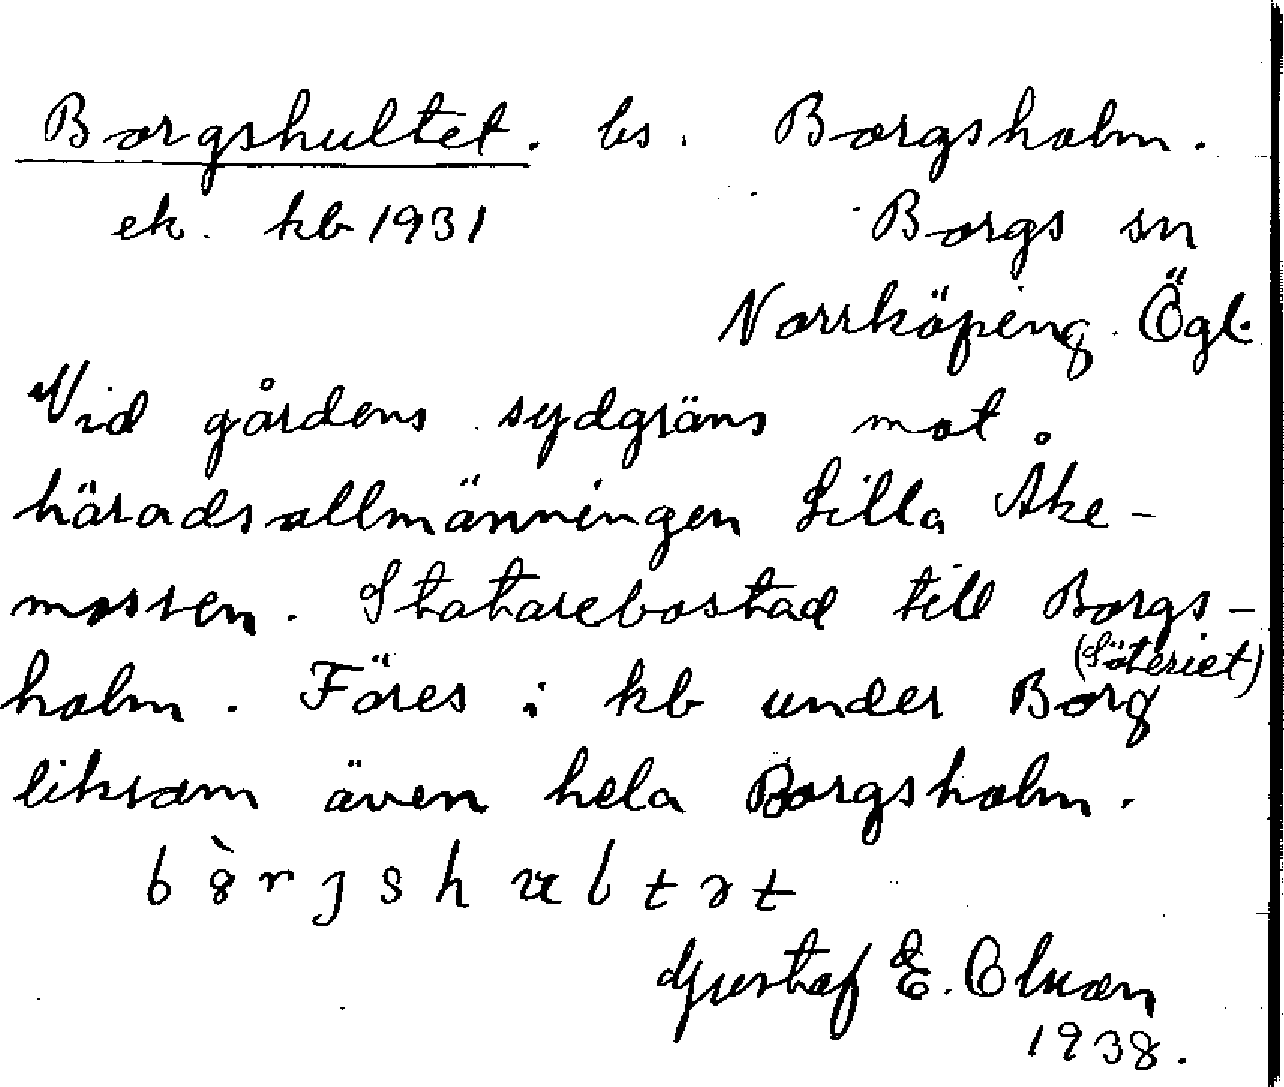 Borgshultet. bs. Borgsholm.
ek. kb 1931 Borgs sn
Norrköping. Ögl.
Vid gårdens sydgräns mot
häradsallmänningen Lilla Åke-
mossen. Statarebostad till Borgs-
holm. Föres i kb under Borg (Säteriet)
liksom även hela Borgsholm.
Gustaf E. Olson
1938.